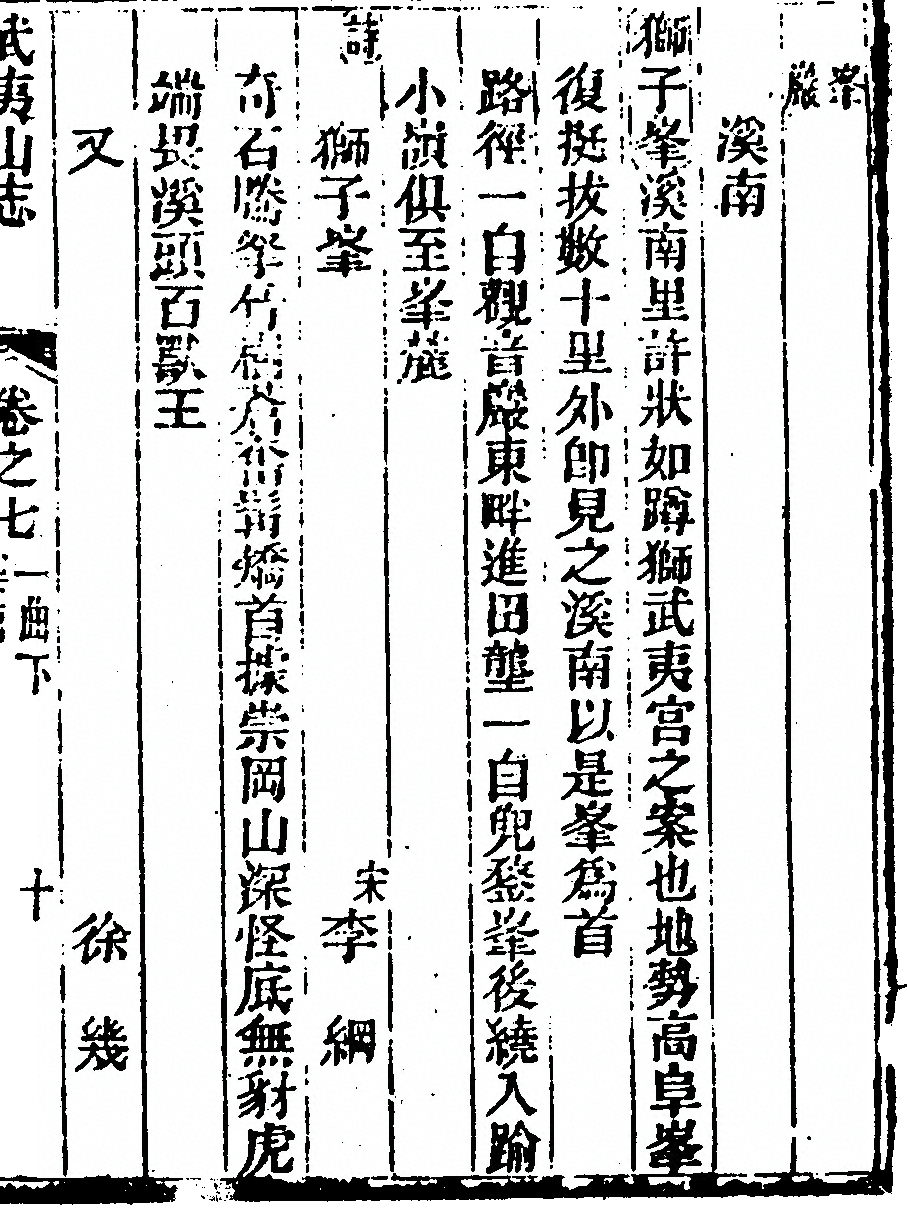 峯巖
溪南
獅子峯溪南里許狀如蹲獅武夷宮之案也地勢高阜峯
復挺拔數十里外即見之溪南以是峯爲首
路徑一自觀音巖東畔進田壟一自兜鍪峯後繞入踰
小嶺俱至峯麓
詩
獅子峯
宋李綱
奇石騰拏竹樹蒼奮髯矯首據崇岡山深怪底無豺虎
端畏溪頭百獸王
又
徐幾
武夷山志
卷之七
一曲下
十